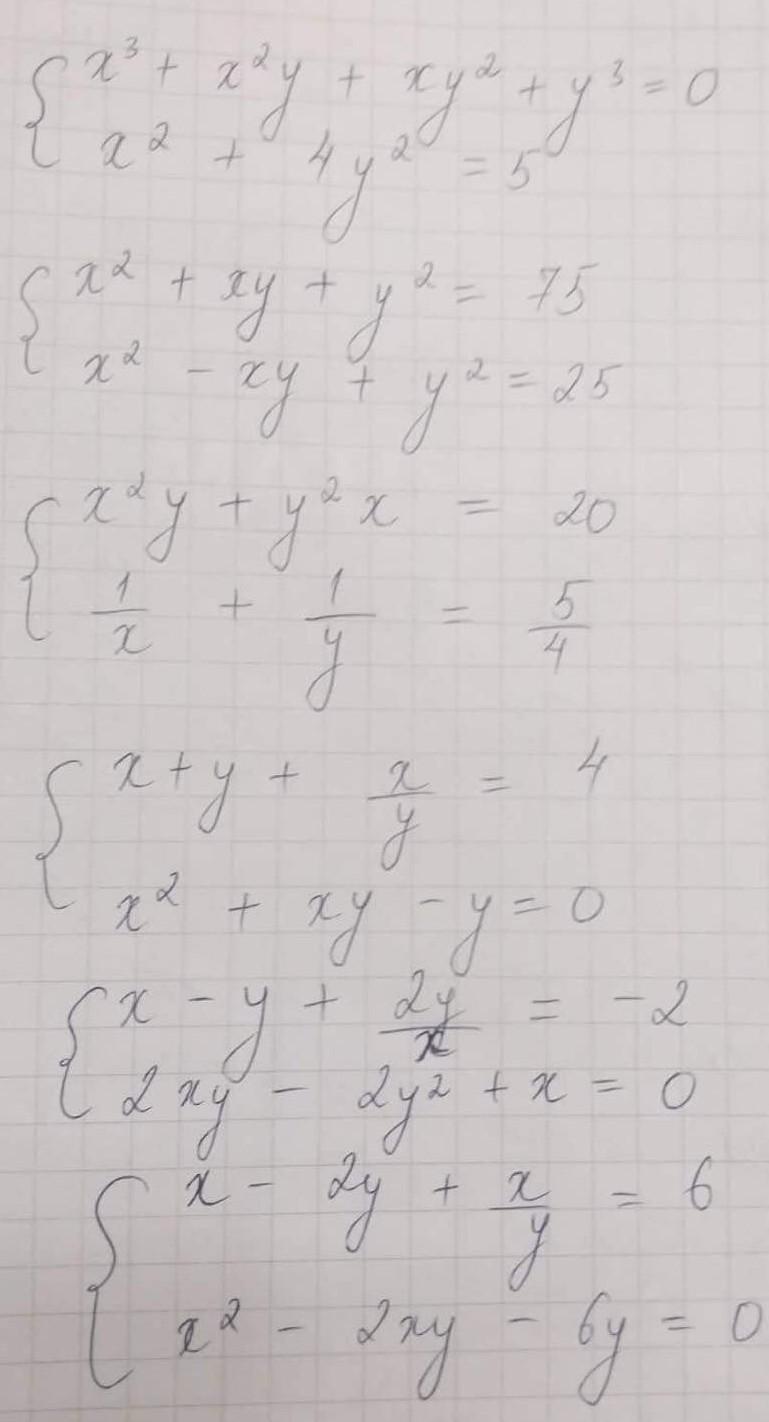 { x³ + x²y + xy² + y³ = 0
x² + 4y² = 5
{ x² + xy + y² = 75
x² - xy + y² = 25
{ x²y + y²x = 20
1/x + 1/y = 5/4
{ x + y + x/y = 4
x² + xy - y = 0
{ x - y + 2y/x = -2
2xy - 2y² + x = 0
{ x - 2y + x/y = 6
x² - 2xy - 6y = 0